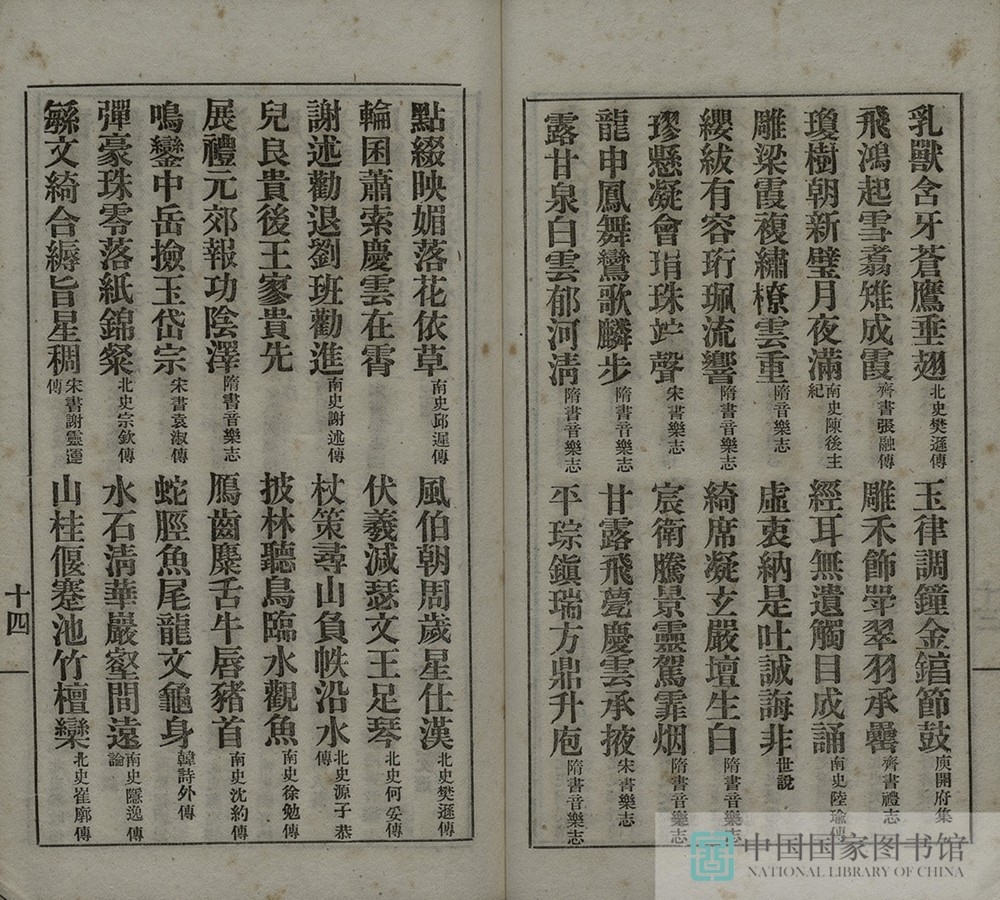 乳獸含牙蒼鷹垂翅 北史樊遜傳 玉律調鐘金錞節鼓 庾開府集
飛鴻起雪翥雉成霞 齊書張融傳 雕禾飾斝翠羽承罍 齊書禮志
瓊樹朝新璧月夜滿 南史陳後主紀 經耳無遺觸目成誦 南史陸瑜傳
雕梁霞複繡橑雲重 隋音樂志 虛衷納是吐誠誨非 世說
纓紱有容珩珮流響 隋書音樂志 綺席凝玄嚴壇生白 隋書音樂志
璆懸凝會琄珠竚聲 宋書樂志 宸衛騰景靈駕霏烟 隋書音樂志
龍申鳳舞鸞歌麟步 隋書音樂志 甘露飛甍慶雲承掖 宋書樂志
露甘泉白雲郁河清 隋書音樂志 平琮鎭瑞方鼎升庖 隋書音樂志
點綴映媚落花依草 南史邱遲傳 風伯朝周歲星仕漢 北史樊遜傳
輪囷蕭索慶雲在霄 伏羲減瑟文王足琴 北史何妥傳
謝述勸退劉班勸進 南史謝述傳 杖策尋山負帙沿水 北史源子恭傳
兒良貴後王寥貴先 披林聽鳥臨水觀魚 南史徐勉傳
展禮元郊報功陰澤 隋書音樂志 鴈齒麋舌牛唇豬首 南史沈約傳
鳴鑾中岳撿玉岱宗 宋書袁淑傳 蛇脛魚尾龍文龜身 韓詩外傳
彈豪珠零落紙錦粲 北史宗欽傳 水石清華巖壑間遠 南史隱逸傳論
繇文綺合縟旨星稠 宋書謝靈運傳 山桂偃蹇池竹檀欒 北史崔廓傳
十四
中国国家图书馆
NATIONAL LIBRARY OF CHINA